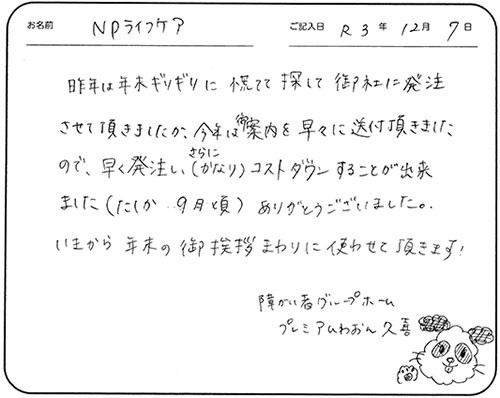 お名前 NPライフケア ご記入日 R3年12月7日
昨年は年末ギリギリに慌てて探して御社に発注
させて頂きましたが、今年は御案内を早々に送付頂きました
ので、早く発注し、さらに(かなり)コストダウンすることが出来
ました(たしか、9月頃)ありがとうございました。
いまから年末の御挨拶まわりに使わせて頂きます!
障がい者グループホーム
プレミアムわおん久喜